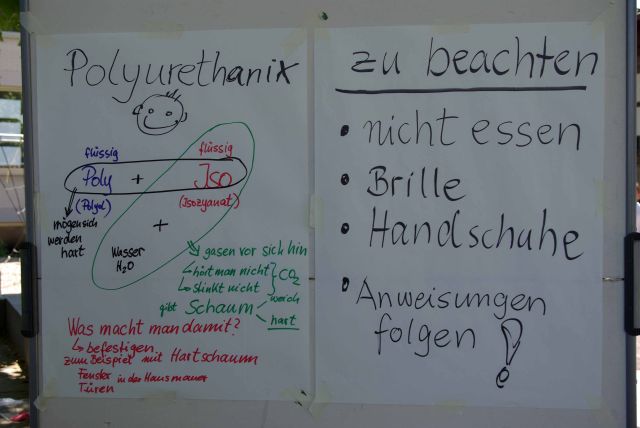 Polyurethanix
flüssig
flüssig
Poly + Iso
(Polyol)
(Isozyanat)
mögen sich
werden
hart
+
Wasser
H₂O
gasen vor sich hin
hört man nicht
stinkt nicht
CO₂
gibt Schaum
weich
hart
Was macht man damit?
befestigen
zum Beispiel mit Hartschaum
Fenster in der Hausmauer
Türen
zu beachten
• nicht essen
• Brille
• Handschuhe
• Anweisungen
folgen!